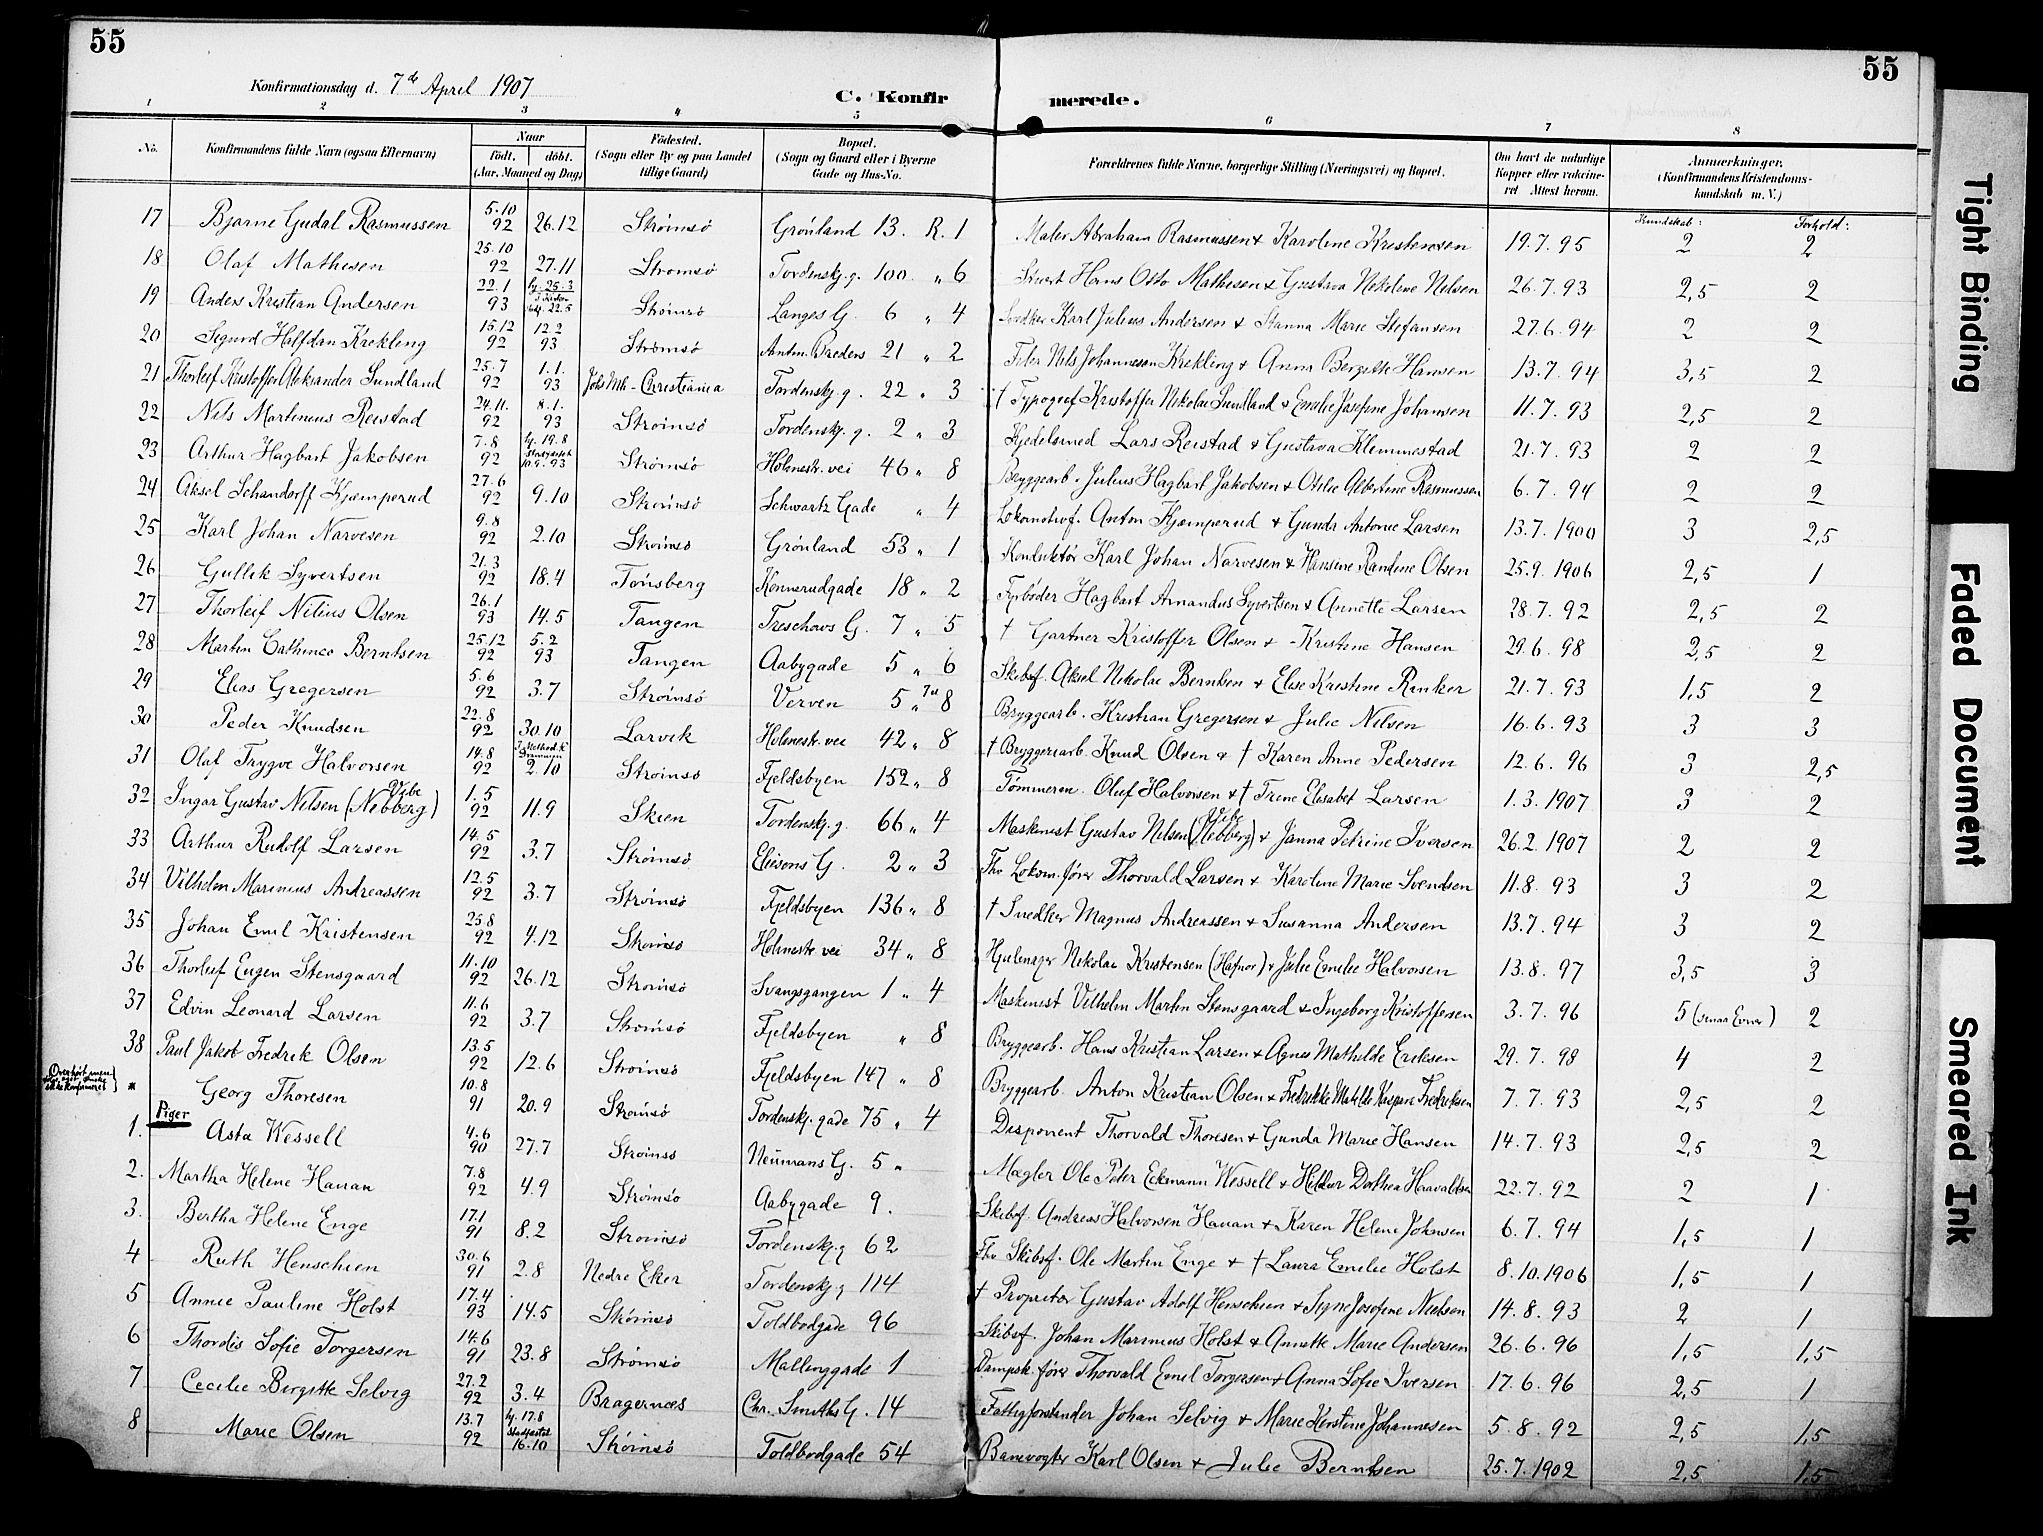 55
55
Konfirmationsdag d. 7de April 1907
C. Konfir merede.
1 2 3 4 5 6 7 8
No. Konfirmandens fulde Navn (ogsaa Efternavn) Naar født. døbt. (Aar, Maaned og Dag) Fødested. (Sogn eller By og paa Landet tillige Gaard) Bopæl. (Sogn og Gaard eller i Byerne Gade og Hus-No. Forældrenes fulde Navne, borgerlige Stilling (Næringsvei) og Bopæl. Om havt de naturlige Kopper eller vakcineret Attest herom. Anmærkninger. (Konfirmandens Kristendomskundskab m. V.)
Kundskab: Forhold:
17 Bjarne Gudal Rasmussen 5.10 92 26.12 Strømsö Grønland 13. R. 1 Maler Abraham Rasmussen & Karoline Kristensen 19.7.95 2 2
18 Olaf Mathesen 25.10 92 27.11 Strömsö Tordenskj.g. 100 " 6 Stuert Hans Otto Mathesen & Gustava Nikoline Nilsen 26.7.93 2,5 2
19 Anders Kristian Andersen 22.1 93 hj. 25.3 22.5 Strömsö Langes G. 6 " 4 Snedker Karl Julius Andersen & Stanna Marie Stefansen 27.6.94 2 2
20 Sigurd Halfdan Krekling 15.12 92 12.2 93 Strømsö Antm. Bredens 21 " 2 Filer Nils Johannesen Krekling & Anna Bergitte Hansen 13.7.94 3,5 2
21 Thorleif Kristoffer Aleksander Sundland 25.7 92 1.1. 93 Johs Mh - Christiania Tordenskj.g. 22 " 3 † Typograf Kristoffer Nikolai Sundland & Emelie Josefine Johansen 11.7.93 2,5 2
22 Nils Martinius Reistad 24.11. 92 8.1. 93 Strömsö Tordenskj.g. 2 " 3 Kjedelsmed Lars Reistad & Gustava Klemmestad 21.7.93 2 2
23 Arthur Hagbart Jakobsen 7.8 92 hj. 19.8 10.9.93 Strömsö Holmestr. vei 46 " 8 Bryggearb. Julius Hagbart Jakobsen & Otilie Albertine Rasmussen 6.7.94 2 2
24 Aksel Schandorff Kjæmperud 27.6 92 9.10 Strömsö Schwartz Gade " 4 Lokomotivf. Anton Kjæmperud & Gunda Antonie Larsen 13.7.1900 3 2,5
25 Karl Johan Narvesen 9.8 92 2.10 Strömsö Grönland 53 " 1 Konduktør Karl Johan Narvesen & Hansine Randine Olsen 25.9.1906 2,5 1
26 Gullik Syvertsen 21.3 92 18.4 Tönsberg Konnerudgade 18 " 2 Fyrbøder Hagbart Amandus Syvertsen & Annette Larsen 28.7.92 2,5 2
27 Thorleif Nilius Olsen 26.1 93 14.5 Tangen Treschows G. 7 " 5 † Gartner Kristoffer Olsen & Kristine Hansen 29.6.98 2,5 2
28 Martin Cathinco Berntsen 25.12 92 5.2 93 Tangen Aabygade 5 " 6 Skibsf. Aksel Nikolai Berntsen & Elise Kristine Rinker 21.7.93 1,5 2
29 Elias Gregersen 5.6 92 3.7 Strömsö Verven 5 " 8 Bryggearb. Kristian Gregersen & Julie Nilsen 16.6.93 3 3
30 Peder Knudsen 22.8 92 30.10 Larvik Holmestr. vei 42 " 8 † Bryggeriarb. Knud Olsen & † Karen Anne Pedersen 12.6.96 3 2,5
31 Olaf Trygve Halvorsen 14.8 92 I Method. K Drammen 2.10 Strömsö Fjeldsbyen 152 " 8 Tømmerm. Oluf Halvorsen & † Trine Elisabet Larsen 1.3.1907 3 2
32 Ingar Gustav Nilsen (Nebberg) Vibe 1.5 92 11.9 Skien Tordenskj.g. 66 " 4 Maskinist Gustav Nilsen (Nebberg) Vibe & Janna Petrine Iversen 26.2.1907 2 2
33 Arthur Rudolf Larsen 14.5 92 3.7 Strømsö Eliesons G. 2 " 3 Fhv Lokom.fører Thorvald Larsen & Karoline Marie Svendsen 11.8.93 3 2
34 Vilhelm Marinius Andreassen 12.5 92 3.7 Strömsö Fjeldsbyen 136 " 8 † Snedker Magnus Andreassen & Susanna Andersen 13.7.94 3 2
35 Johan Emil Kristensen 25.8 92 4.12 Strömsö Holmestr. vei 34 " 8 Hjulmager Nikolai Kristensen (Hafnor) & Julie Emelie Halvorsen 13.8.97 3,5 3
36 Thorleif Eugen Stensgaard 11.10 92 26.12 Strömsö Svangsgangen 1 " 4 Maskinist Vilhelm Martin Stensgaard & Ingeborg Kristoffersen 3.7.96 5 (smaa Evner) 2
37 Edvin Leonard Larsen 11.6 92 3.7 Strömsö Fjeldsbyen " 8 Bryggearb. Hans Kristian Larsen & Agnes Mathilde Eriksen 29.7.98 4 2
38 Paul Jakob Fredrik Olsen 13.5 92 12.6 Strömsö Fjeldsbyen 147 " 8 Bryggearb. Anton Kristian Olsen & Fredrikke Matilde Kaspara Fredriksen 7.7.93 2,5 2
Overhørt men ikke konfirmeret * Georg Thoresen 10.8 91 20.9 Strömsö Tordenskj. gade 75 " 4 Disponent Thorvald Thoresen & Gunda Marie Hansen 14.7.93 2,5 2
Piger
1. Asta Wessell 4.6 90 27.7 Strömsö Neumans G. 5 " Mægler Ole Peter Eckmann Wessell & Hildur Dorthea Haavaldsen 22.7.92 2 1
2. Martha Helene Hanan 7.8 92 4.9 Strömsö Aabygade 9. Skibsf. Andreas Halvorsen Hanan & Karen Helene Johnsen 6.7.94 1,5 1
3. Bertha Helene Enge 17.1 91 8.2 Strömsö Tordenskj.g 62 Fhv Skibsf. Ole Martin Enge & † Laura Emelie Holst 8.10.1906 1,5 1
4 Ruth Henschien 30.6 91 2.8 Nedre Eker Tordenskj.g 114 † Proprietær Gustav Adolf Henschien & Signe Josefine Nielsen 14.8.93 2 1
5 Annie Pauline Holst 17.4 93 14.5 Strömsö Toldbodgade 96 Skibsf. Johan Marinius Holst & Annette Marie Andersen 26.6.96 1,5 1,5
6 Thordis Sofie Torgersen 14.6 91 23.8 Strømsö Mallinggade 1 Dampsk. fører Thorvald Emil Torgersen & Anna Sofie Iversen 17.6.96 2,5 1
7 Cecilie Birgitte Selvig 27.2 92 3.4 Bragernæs Chr. Smiths G. 14 Fattigforstander Johan Selvig & Marie Kirstine Johannesen 5.8.92 2,5 1,5
8 Marie Olsen 13.7 92 hj. 17.8 Stadfæstet 16.10 Strömsö Toldbodgade 54 Banevogter Karl Olsen & Julie Berntsen 25.7.1902 2,5 1,5
Tight Binding
Faded Document
Smeared Ink